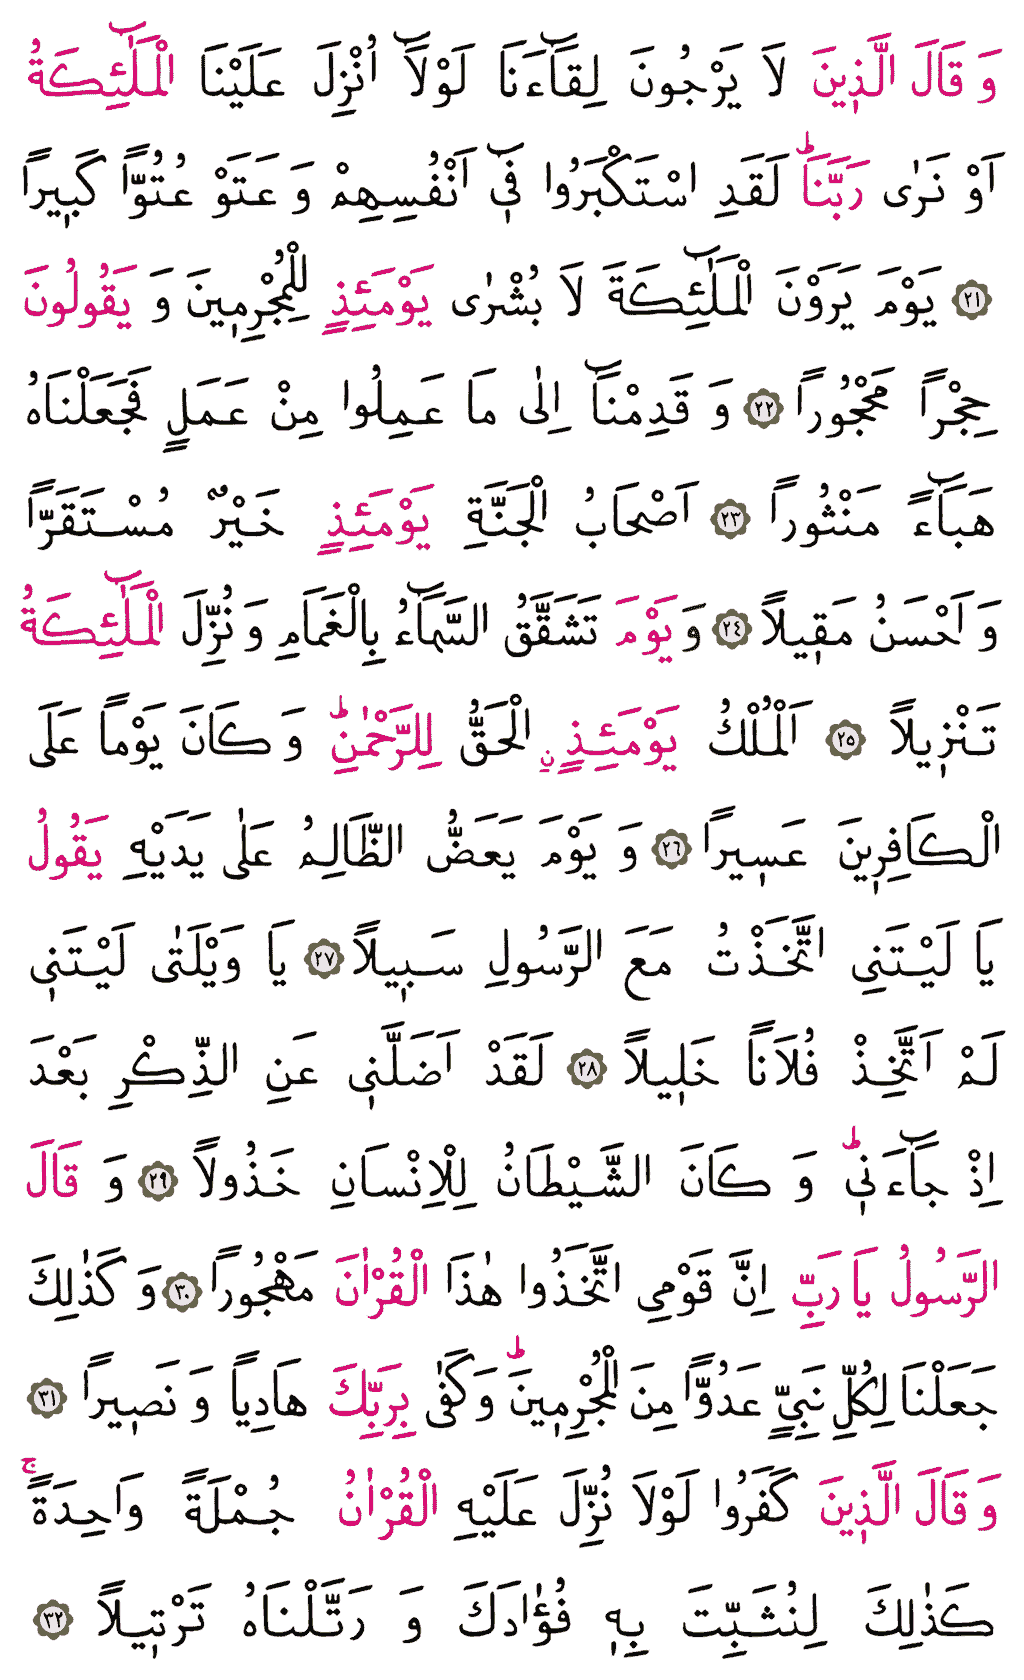 وَ قَالَ الَّذ۪ينَ لَا يَرْجُونَ لِقَٓاءَنَا لَوْلَٓا اُنْزِلَ عَلَيْنَا الْمَلٰٓئِكَةُ
اَوْ نَرٰى رَبَّنَاۜ لَقَدِ اسْتَكْبَرُوا ف۪ٓي اَنْفُسِهِمْ وَ عَتَوْ عُتُوًّا كَب۪يرًا
﴿٢١﴾ يَوْمَ يَرَوْنَ الْمَلٰٓئِكَةَ لَا بُشْرٰى يَوْمَئِذٍ لِلْمُجْرِم۪ينَ وَ يَقُولُونَ
حِجْرًا مَحْجُورًا ﴿٢٢﴾ وَ قَدِمْنَٓا اِلٰى مَا عَمِلُوا مِنْ عَمَلٍ فَجَعَلْنَاهُ
هَبَٓاءً مَنْثُورًا ﴿٢٣﴾ اَصْحَابُ الْجَنَّةِ يَوْمَئِذٍ خَيْرٌ مُسْتَقَرًّا
وَ اَحْسَنُ مَق۪يلًا ﴿٢٤﴾ وَ يَوْمَ تَشَقَّقُ السَّمَٓاءُ بِالْغَمَامِ وَ نُزِّلَ الْمَلٰٓئِكَةُ
تَنْز۪يلًا ﴿٢٥﴾ اَلْمُلْكُ يَوْمَئِذٍ ن۪ الْحَقُّ لِلرَّحْمٰنِۜ وَ كَانَ يَوْمًا عَلَى
الْكَافِر۪ينَ عَس۪يرًا ﴿٢٦﴾ وَ يَوْمَ يَعَضُّ الظَّالِمُ عَلٰى يَدَيْهِ يَقُولُ
يَا لَيْتَنِى اتَّخَذْتُ مَعَ الرَّسُولِ سَب۪يلًا ﴿٢٧﴾ يَا وَيْلَتٰى لَيْتَن۪ى
لَمْ اَتَّخِذْ فُلَانًا خَل۪يلًا ﴿٢٨﴾ لَقَدْ اَضَلَّن۪ى عَنِ الذِّكْرِ بَعْدَ
اِذْ جَٓاءَن۪ىۜ وَ كَانَ الشَّيْطَانُ لِلْاِنْسَانِ خَذُولًا ﴿٢٩﴾ وَ قَالَ
الرَّسُولُ يَا رَبِّ اِنَّ قَوْمِى اتَّخَذُوا هٰذَا الْقُرْاٰنَ مَهْجُورًا ﴿٣٠﴾ وَ كَذٰلِكَ
جَعَلْنَا لِكُلِّ نَبِيٍّ عَدُوًّا مِنَ الْمُجْرِم۪ينَۜ وَ كَفٰى بِرَبِّكَ هَادِيًا وَ نَص۪يرًا ﴿٣١﴾
وَ قَالَ الَّذ۪ينَ كَفَرُوا لَوْلَا نُزِّلَ عَلَيْهِ الْقُرْاٰنُ جُمْلَةً وَاحِدَةًۚ
كَذٰلِكَ لِنُثَبِّتَ بِه۪ فُؤٰادَكَ وَ رَتَّلْنَاهُ تَرْت۪يلًا ﴿٣٢﴾